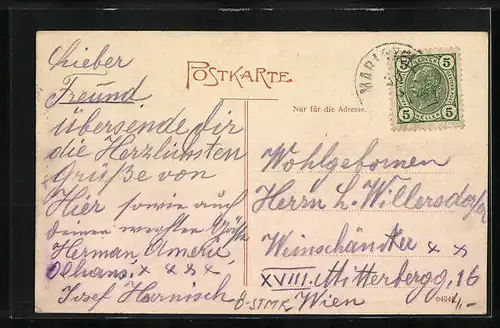 Lieber
Freund
übersende dir
die Herzlichsten
Grüße von
Hier sowie auch
deinen werthen
Herman,
Josef Harnisch
POSTKARTE
Nur für die Adresse.
MARIA
5 5
5 HELLER 5
Wohlgebornen
Herrn L. Willersdorfer
Weinschänker x x
XVIII. Mitterbergg. 16
Wien
8-STMK